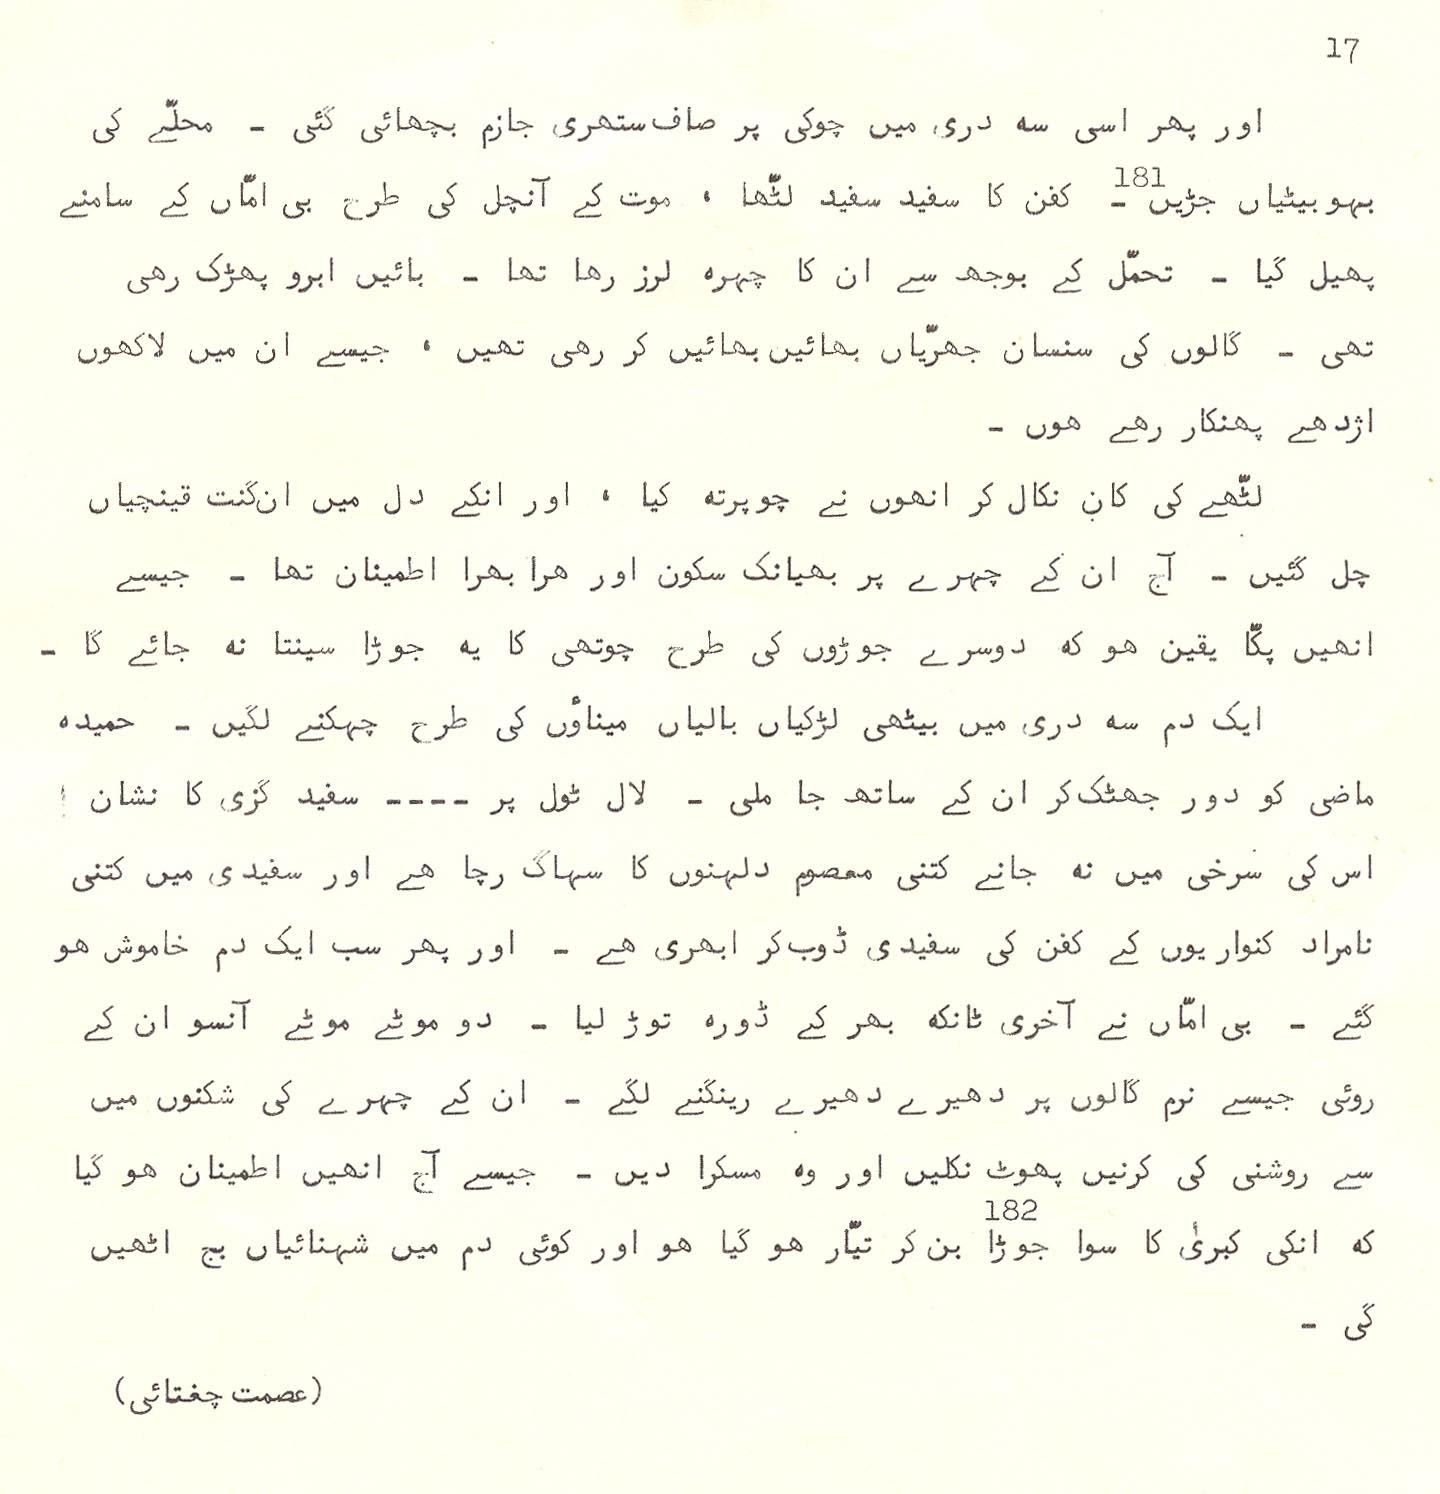 17
اور پھر اسی سہ دری میں چوکی پر صاف ستھری جازم بچھائی گئی ۔ محلّے کی
بہو بیٹیاں جڑیں181۔ کفن کا سفید سفید لٹّھا ، موت کے آنچل کی طرح بی امّاں کے سامنے
پھیل گیا ۔ تحمّل کے بوجھ سے ان کا چہرہ لرز رھا تھا ۔ بائیں ابرو پھڑک رھی
تھی ۔ گالوں کی سنسان جھرّیاں بھائیں بھائیں کر رھی تھیں ، جیسے ان میں لاکھوں
اژدھے پھنکار رھے ھوں ۔
لٹّھے کی کان نکال کر انھوں نے چوپرتہ کیا ، اور انکے دل میں ان گنت قینچیاں
چل گئیں ۔ آج ان کے چہرے پر بھیانک سکون اور ھرا بھرا اطمینان تھا ۔ جیسے
انھیں پکّا یقین ھو کہ دوسرے جوڑوں کی طرح چوتھی کا یہ جوڑا سینتا نہ جائے گا ۔
ایک دم سہ دری میں بیٹھی لڑکیاں بالیاں میناؤں کی طرح چہکنے لگیں ۔ حمیدہ
ماضی کو دور جھٹک کر ان کے ساتھ جا ملی ۔ لال ٹول پر ۔۔۔۔ سفید گزی کا نشان !
اس کی سرخی میں نہ جانے کتنی معصوم دلہنوں کا سہاگ رچا ھے اور سفیدی میں کتنی
نامراد کنواریوں کے کفن کی سفیدی ڈوب کر ابھری ھے ۔ اور پھر سب ایک دم خاموش ھو
گئے ۔ بی امّاں نے آخری ٹانکہ بھر کے ڈورہ توڑ لیا ۔ دو موٹے موٹے آنسو ان کے
روئی جیسے نرم گالوں پر دھیرے دھیرے رینگنے لگے ۔ ان کے چہرے کی شکنوں میں
سے روشنی کی کرنیں پھوٹ نکلیں اور وہ مسکرا دیں ۔ جیسے آج انھیں اطمینان ھو گیا
کہ انکی کبریٰ کا سوا جوڑا182 بن کر تیّار ھو گیا ھو اور کوئی دم میں شہنائیاں بج اٹھیں
گی ۔
(عصمت چغتائی)